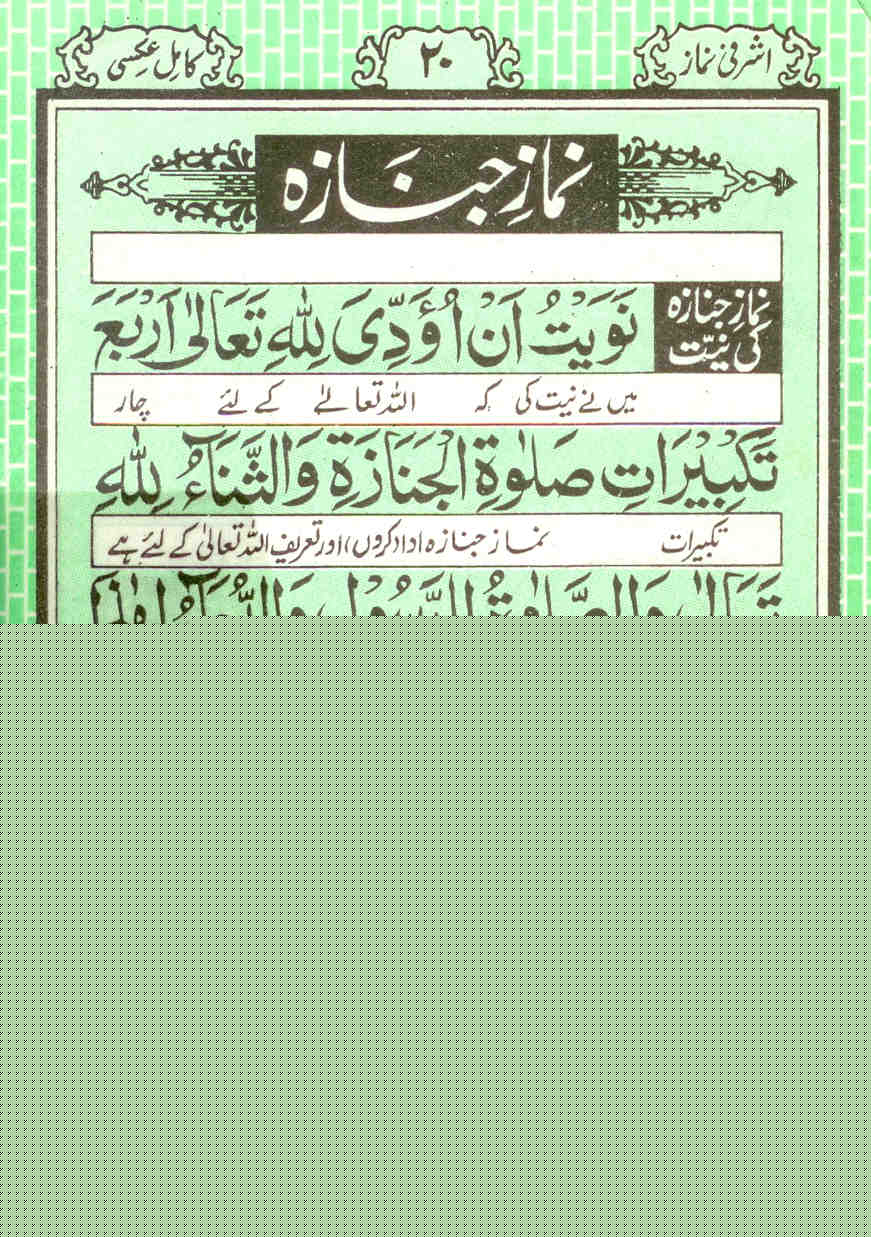 اشرفی نماز ۲۰ کامل عکسی
نمازِ جنَازہ
نمازِ جنازہ
کی نیّت
نَوَيْتُ اَنْ اُؤَدِّىَ لِلّٰهِ تَعَالٰى اَرْبَعَ
میں نے نیت کی کہ اللہ تعالےٰ کے لئے چار
تَكْبِيْرَاتِ صَلٰوةِ الْجَنَازَةِ وَالثَّنَآءُ لِلّٰهِ
تکبیرات نماز جنازہ ادا کروں، اور تعریف اللہ تعالیٰ کے لئے ہے